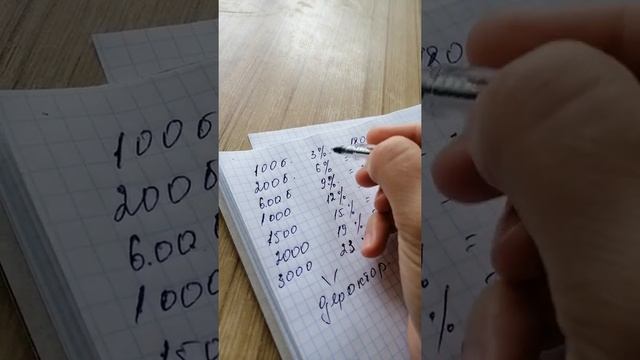 100б. 3% 180
200б. 6% =
600б 9%
1000 12% =
1500 15% =
2000 19% =
3000 23
дероктор.